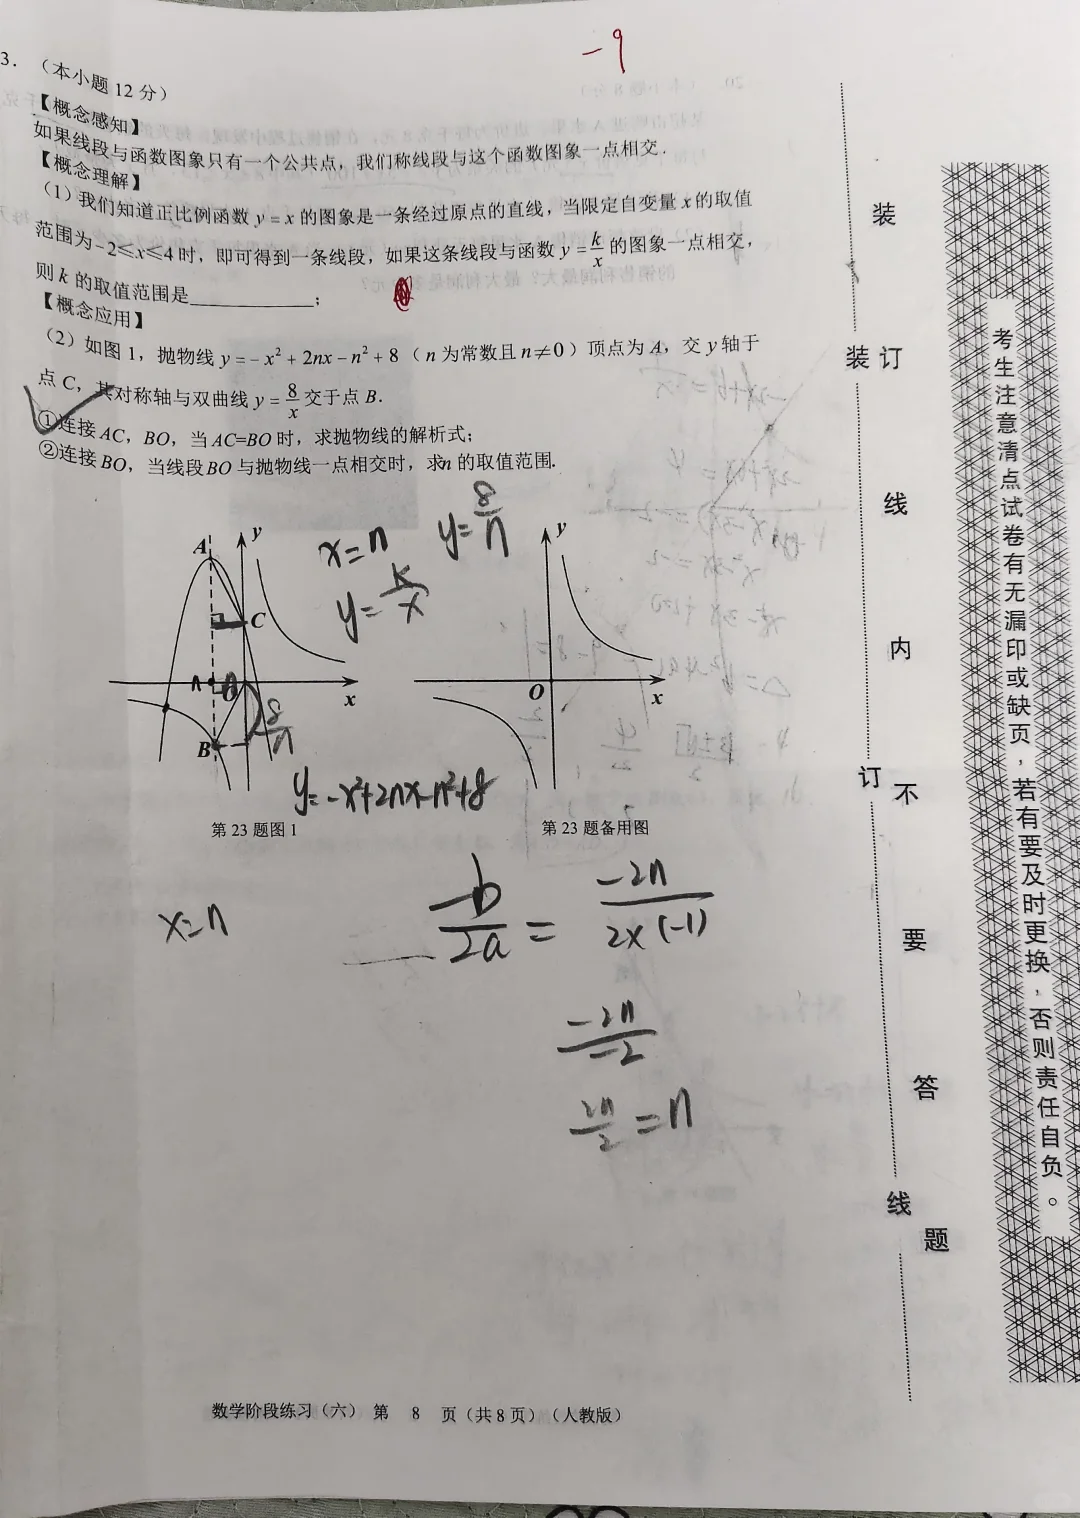 -9
3. （本小题 12 分）
【概念感知】
如果线段与函数图象只有一个公共点，我们称线段与这个函数图象一点相交.
【概念理解】
（1）我们知道正比例函数 y = x 的图象是一条经过原点的直线，当限定自变量 x 的取值
范围为 -2≤x≤4 时，即可得到一条线段，如果这条线段与函数 y = k/x 的图象一点相交，
则 k 的取值范围是____________；
【概念应用】
（2）如图 1，抛物线 y = - x² + 2nx - n² + 8（n 为常数且 n≠0）顶点为 A，交 y 轴于
点 C，其对称轴与双曲线 y = 8/x 交于点 B.
①连接 AC，BO，当 AC=BO 时，求抛物线的解析式；
②连接 BO，当线段 BO 与抛物线一点相交时，求n 的取值范围.
x=n
y=8/n
y=k/x
A
y
C
n
O
x
8/n
B
y
O
x
y=-x²+2nx-n²+8
第 23 题图 1
第 23 题备用图
x=n
-b/2a = -2n/2×(-1)
-2n/-2
2n/2 =n
数学阶段练习（六） 第 8 页（共 8 页）（人教版）
装
装 订
线
内
订 不
要
答
线
题
考生注意清点试卷有无漏印或缺页，若有要及时更换，否则责任自负。